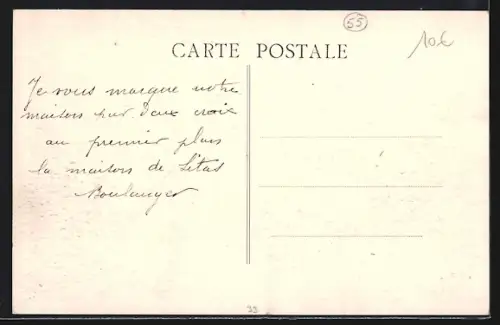 55
10€
CARTE POSTALE
Je vous marque notre
maison par deux croix
au premier plan
la maison de
Boulanger
33